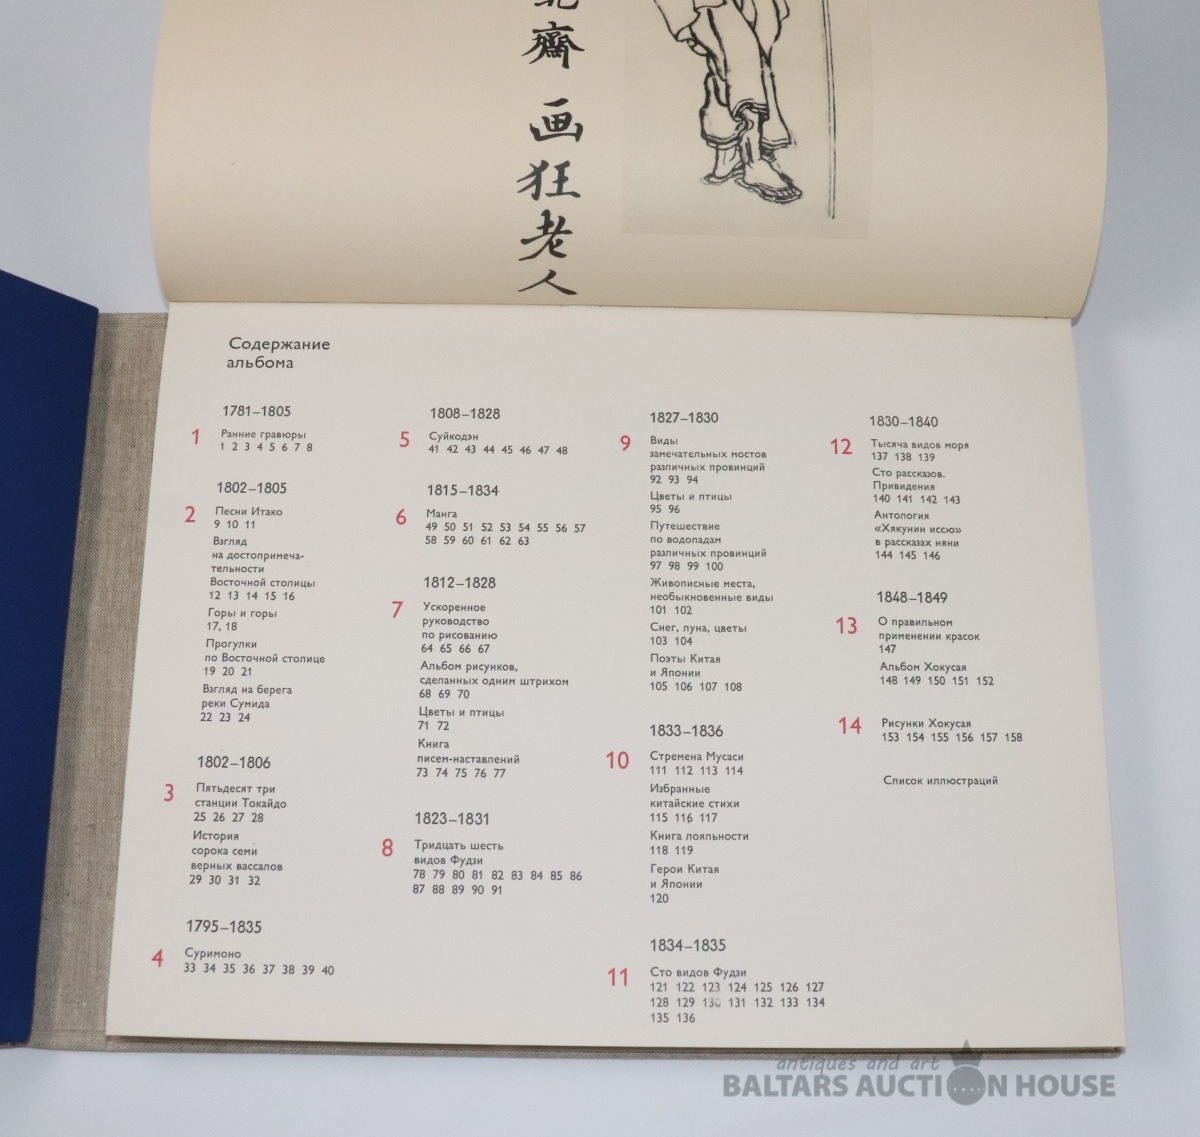 齋
画
狂
老
人
Содержание
альбома
1781–1805
1
Ранние гравюры
1 2 3 4 5 6 7 8
1802–1805
2
Песни Итако
9 10 11
Взгляд
на достопримеча-
тельности
Восточной столицы
12 13 14 15 16
Горы и горы
17, 18
Прогулки
по Восточной столице
19 20 21
Взгляд на берега
реки Сумида
22 23 24
1802–1806
3
Пятьдесят три
станции Токайдо
25 26 27 28
История
сорока семи
верных вассалов
29 30 31 32
1795–1835
4
Суримоно
33 34 35 36 37 38 39 40
1808–1828
5
Суйкодэн
41 42 43 44 45 46 47 48
1815–1834
6
Манга
49 50 51 52 53 54 55 56 57
58 59 60 61 62 63
1812–1828
7
Ускоренное
руководство
по рисованию
64 65 66 67
Альбом рисунков,
сделанных одним штрихом
68 69 70
Цветы и птицы
71 72
Книга
писем-наставлений
73 74 75 76 77
1823–1831
8
Тридцать шесть
видов Фудзи
78 79 80 81 82 83 84 85 86
87 88 89 90 91
1827–1830
9
Виды
замечательных мостов
различных провинций
92 93 94
Цветы и птицы
95 96
Путешествие
по водопадам
различных провинций
97 98 99 100
Живописные места,
необыкновенные виды
101 102
Снег, луна, цветы
103 104
Поэты Китая
и Японии
105 106 107 108
1833–1836
10
Стремена Мусаси
111 112 113 114
Избранные
китайские стихи
115 116 117
Книга лояльности
118 119
Герои Китая
и Японии
120
1834–1835
11
Сто видов Фудзи
121 122 123 124 125 126 127
128 129 130 131 132 133 134
135 136
1830–1840
12
Тысяча видов моря
137 138 139
Сто рассказов.
Привидения
140 141 142 143
Антология
«Хякунин иссю»
в рассказах няни
144 145 146
1848–1849
13
О правильном
применении красок
147
Альбом Хокусая
148 149 150 151 152
14
Рисунки Хокусая
153 154 155 156 157 158
Список иллюстраций
antiques and art
BALTARS AUCTION HOUSE